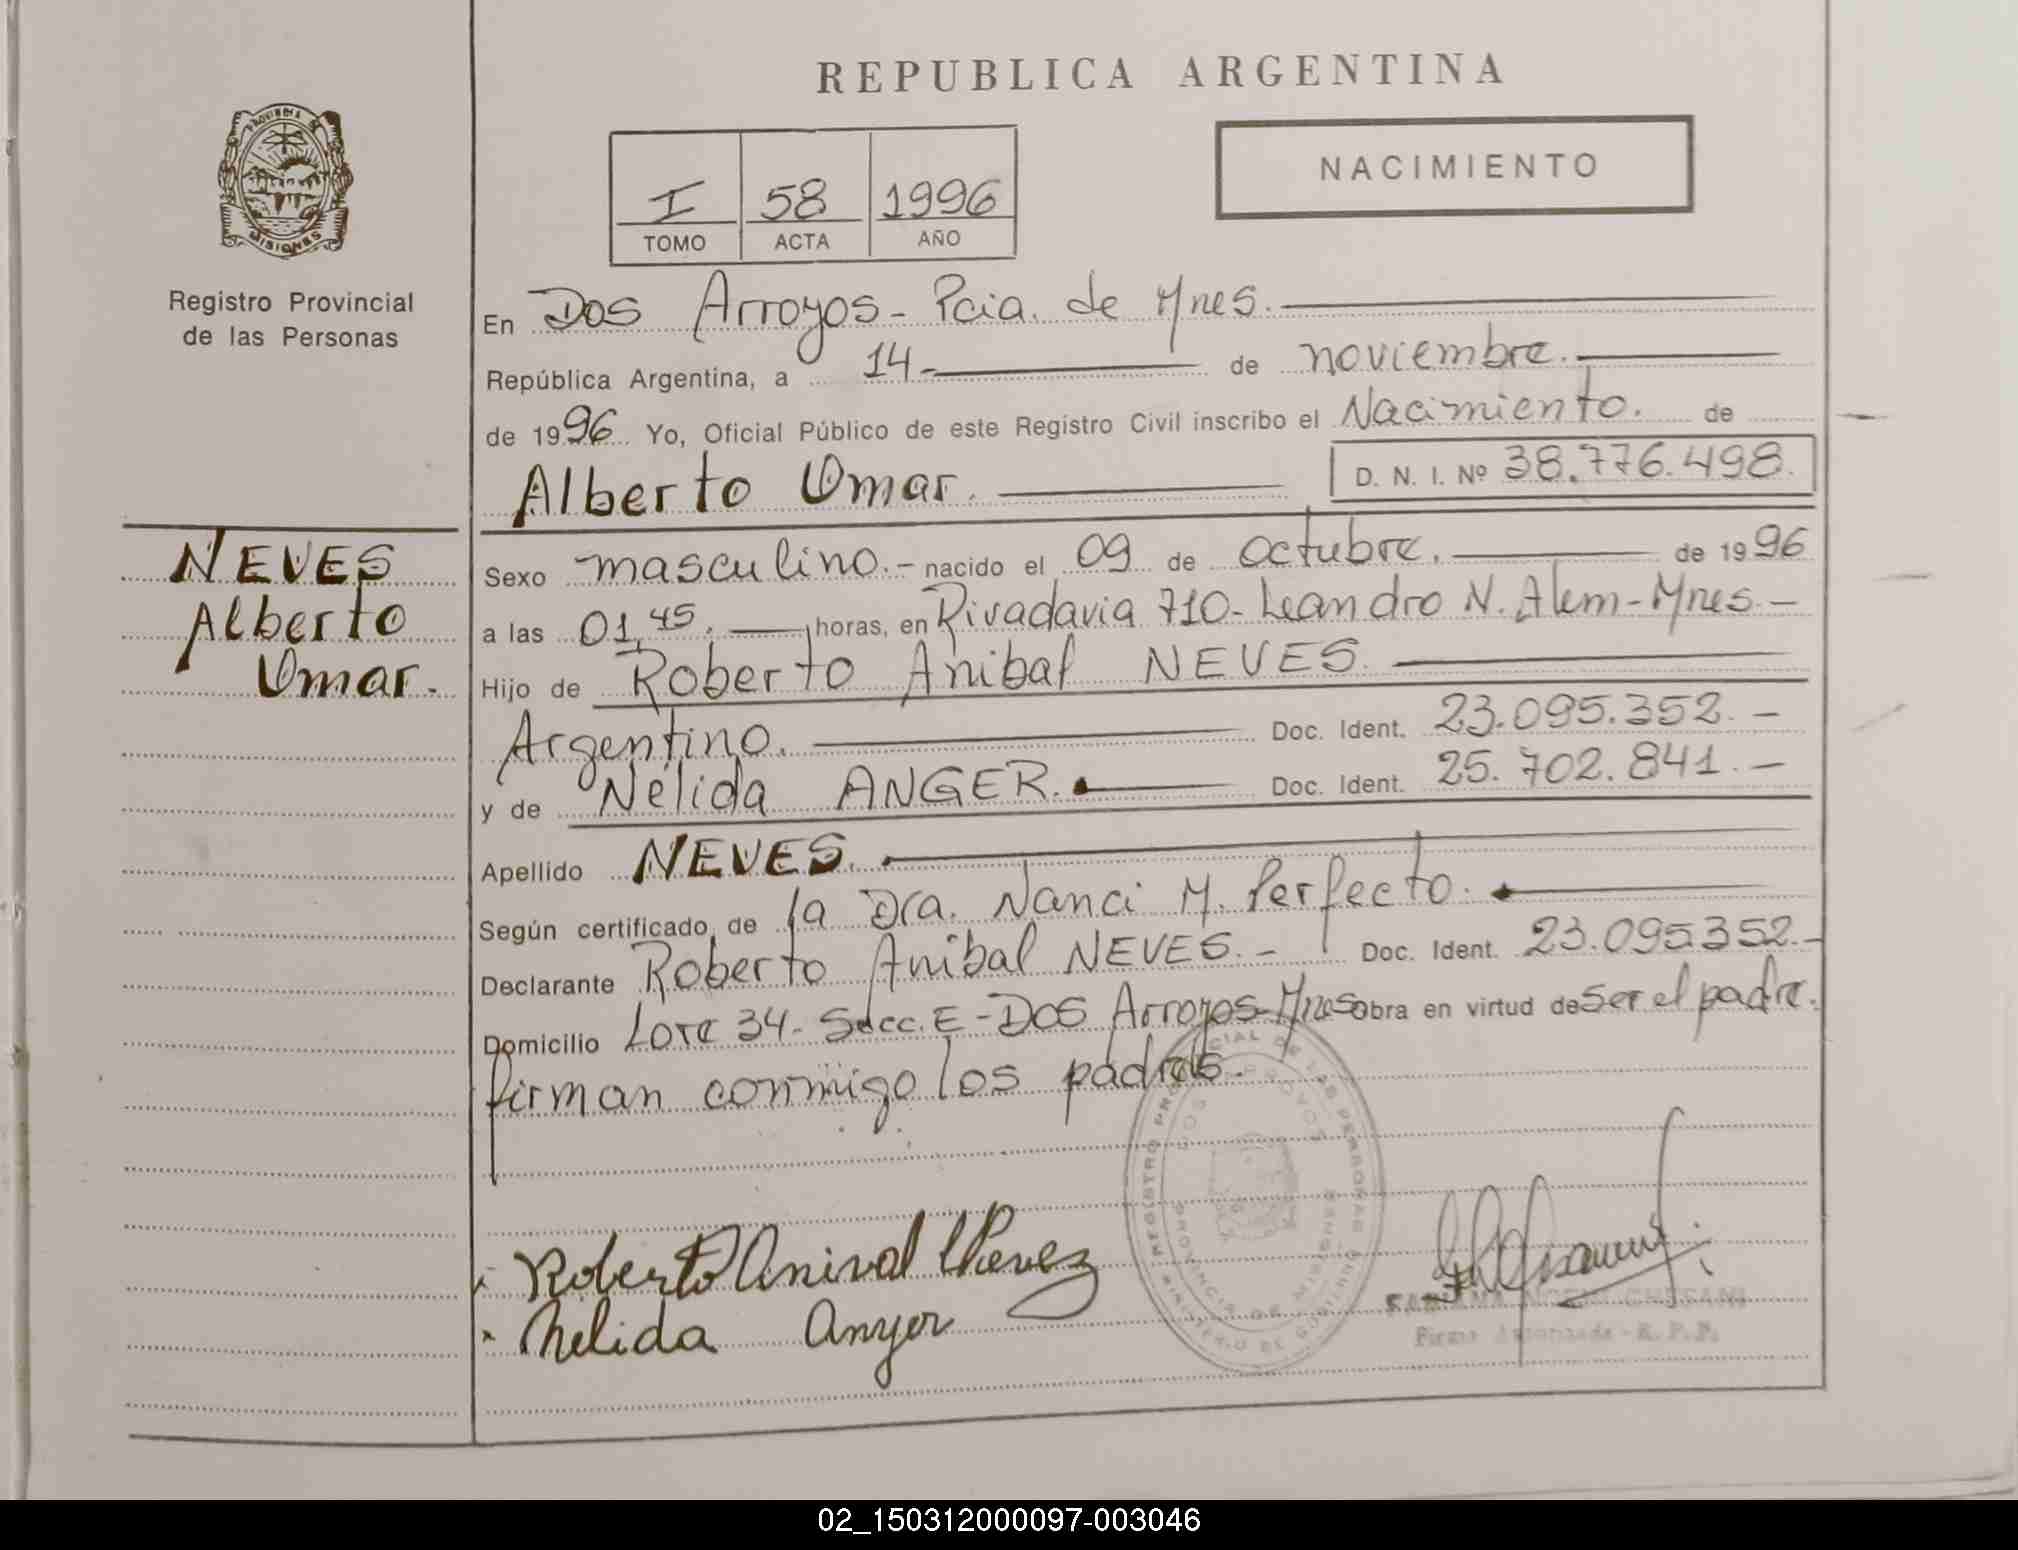 REPUBLICA ARGENTINA
NACIMIENTO
I 58 1996
TOMO ACTA AÑO
PROVINCIA DE
MISIONES
Registro Provincial
de las Personas
En Dos Arroyos - Pcia. de Mnes.
República Argentina, a 14 - de noviembre.
de 1996 Yo, Oficial Público de este Registro Civil inscribo el Nacimiento. de
Alberto Omar. D. N. I. Nº 38.776.498.
NEVES
Alberto
Omar.
Sexo masculino. - nacido el 09 de octubre. de 1996
a las 01,45. horas, en Rivadavia 710 - Leandro N. Alem - Mnes -
Hijo de Roberto Anibal NEVES.
Argentino. Doc. Ident. 23.095.352. -
y de Nélida ANGER. Doc. Ident. 25.702.841. -
Apellido NEVES.
Según certificado de la Dra. Nanci M. Perfecto.
Declarante Roberto Anibal NEVES. - Doc. Ident. 23.095352. -
Domicilio Lote 34 - Secc. E - Dos Arroyos - Mnes obra en virtud de ser el padre.
firman conmigo los padres.
REGISTRO PROVINCIAL DE LAS PERSONAS
DOS ARROYOS
PROVINCIA DE MISIONES
MINISTERIO DE GOBIERNO
Roberto Anival
Nelida Anger
Firma Autorizada - R. P. P.
02_150312000097-003046